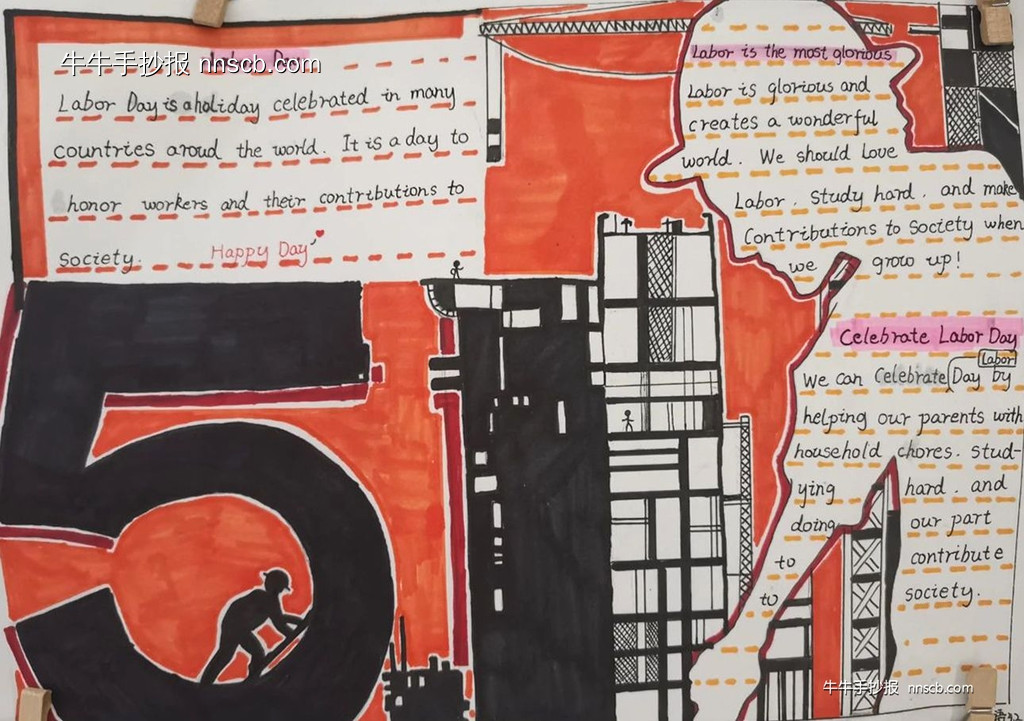 牛牛手抄报 nnscb.com
Labor Day
Labor Day is a holiday celebrated in many
countries aroud the world. It is a day to
honor workers and their contributions to
Society. Happy Day
5
Labor is the most glorious
Labor is glorious and
creates a wonderful
world. We should Love
Labor. Study hard. and make
Contributions to Society when
we grow up!
Celebrate Labor Day
Labor
We can Celebrate Day by
helping our parents with
household chores. stud-
lying hard. and
doing our part
to contribute
to society.
牛牛手抄报 nnscb.com